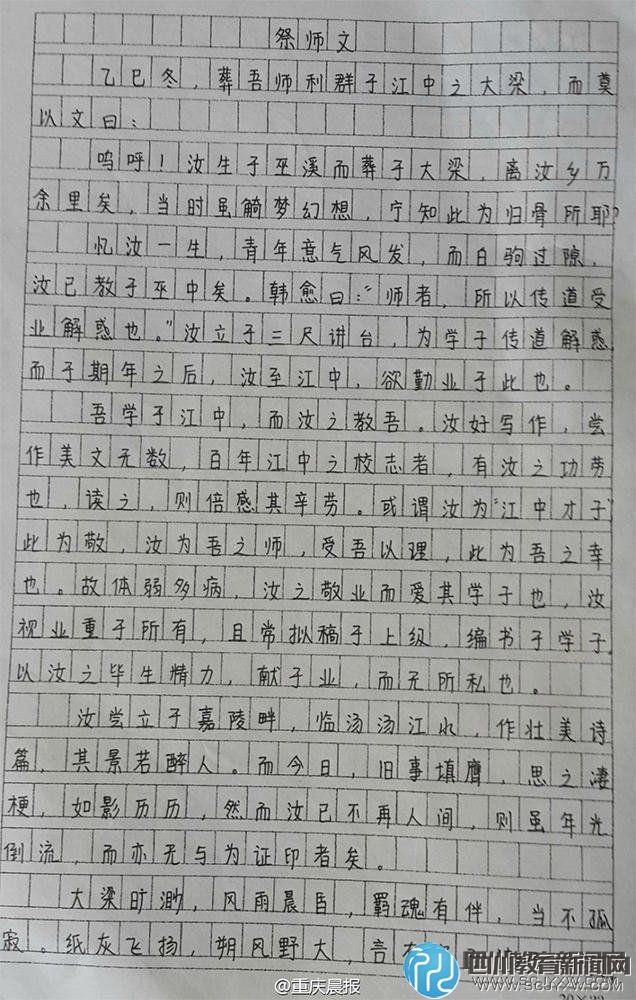 祭师文
乙巳冬，葬吾师利群于江中之大梁，而奠
以文曰：
呜呼！汝生于巫溪而葬于大梁，离汝乡万
余里矣，当时虽觭梦幻想，宁知此为归骨所耶？
忆汝一生，青年意气风发，而白驹过隙，
汝已教于巫中矣。韩愈曰：“师者，所以传道受
业解惑也。”汝立于三尺讲台，为学子传道解惑，
而于期年之后，汝至江中，欲勤业于此也。
吾学于江中，而汝之教吾。汝好写作，尝
作美文无数，百年江中之校志者，有汝之功劳
也，读之，则倍感其辛劳。或谓汝为“江中才子”
此为敬，汝为吾之师，受吾以理，此为吾之幸
也。故体弱多病，汝之敬业而爱其学子也，汝
视业重于所有，且常拟稿于上级，编书于学子，
以汝之毕生精力，献于业，而无所私也。
汝尝立于嘉陵畔，临汤汤江水，作壮美诗
篇，其景若醉人。而今日，旧事填膺，思之凄
梗，如影历历，然而汝已不再人间，则虽年光
倒流，而亦无与为证印者矣。
大梁旷渺，风雨晨昏，羁魂有伴，当不孤
寂。纸灰飞扬，朔风野大，
@重庆晨报
四川教育新闻网
WWW.SCJYXW.COM